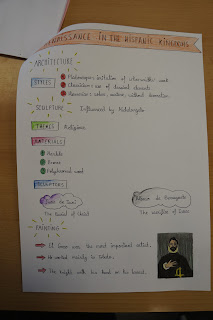 RENAISSANCE IN THE HISPANIC KINGDOMS
ARCHITECTURE
STYLES
Plateresque: imitation of silversmiths' work
Classicism: use of classical elements
Herrerian: sober, austere, without decoration
SCULPTURE Influenced by Michelangelo
THEMES Religious
MATERIALS
Marble
Bronze
Polychromed wood
SCULPTORS
Juan de Juni
Alonso de Berruguete
The Burial of Christ
The sacrifice of Isaac
PAINTING
El Greco was the most important artist.
He worked mainly in Toledo.
The Knight with his hand on his breast.